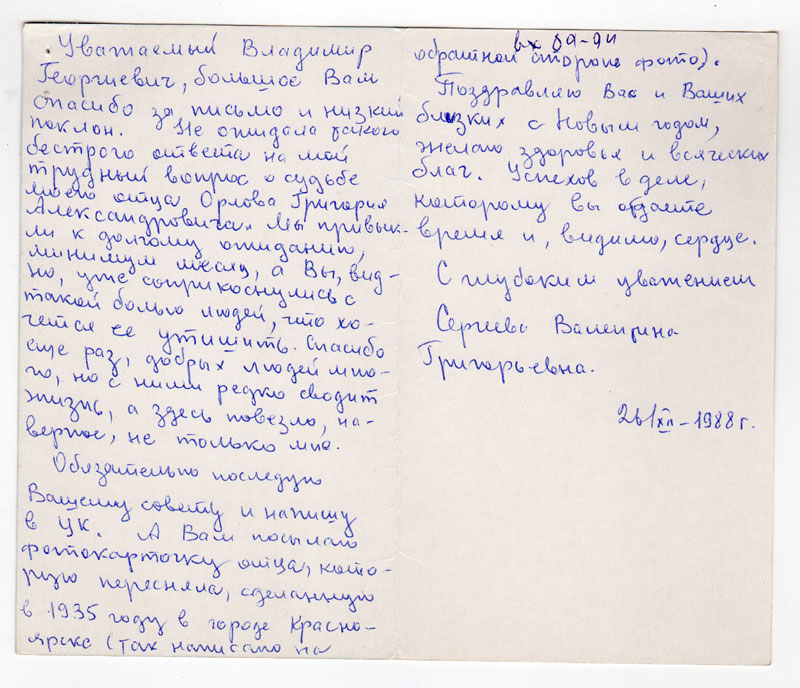 Уважаемый Владимир
Георгиевич, большое Вам
спасибо за письмо и низкий
поклон. Не ожидала такого
быстрого ответа на мой
трудный вопрос о судьбе
моего отца Орлова Григория
Александровича. Мы привык-
ли к долгому ожиданию,
минимум месяц, а Вы, вид-
но, уже соприкоснулись с
такой болью людей, что хо-
чется её утишить. Спасибо
еще раз, добрых людей мно-
го, но с ними редко сводит
жизнь, а здесь повезло, на-
верное, не только мне.
Обязательно последую
Вашему совету и напишу
в ЦК. А Вам посылаю
фотокарточку отца, кото-
рую пересняла, сделанную
в 1935 году в городе Красно-
ярске (так написано на
вх 89-94
обратной стороне фото).
Поздравляю Вас и Ваших
близких с Новым годом,
желаю здоровья и всяческих
благ. Успехов в деле,
которому вы отдаете
время и, видимо, сердце.
С глубоким уважением
Сергеева Валентина
Григорьевна.
26/XII-1988 г.